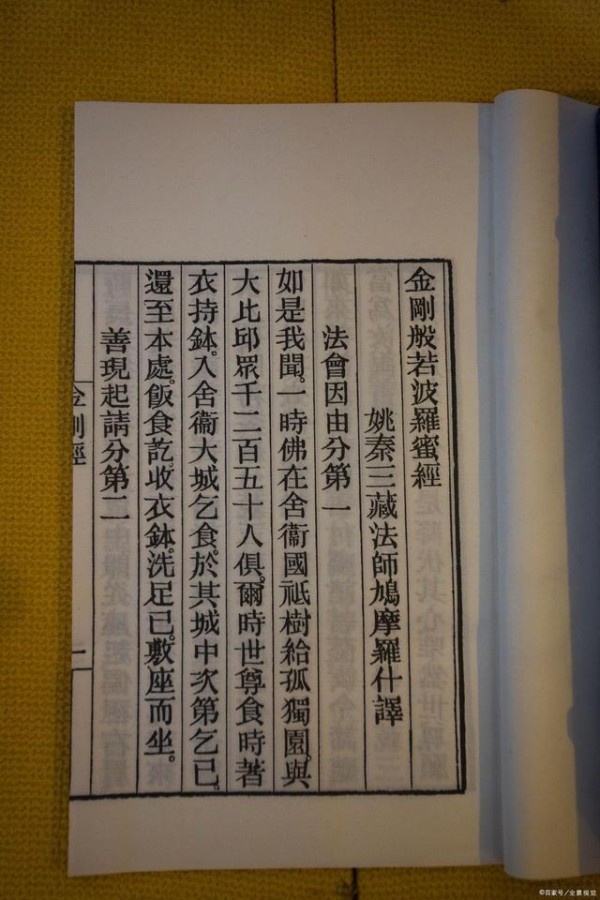 金剛般若波羅蜜經
姚秦三藏法師鳩摩羅什譯
法會因由分第一
如是我聞。一時佛在舍衞國祗樹給孤獨園。與
大比邱眾千二百五十人俱。爾時世尊食時著
衣持鉢。入舍衞大城乞食。於其城中次第乞已。
還至本處。飯食訖。收衣鉢。洗足已。敷座而坐。
善現起請分第二
金剛經
一
©百家号／全景视觉